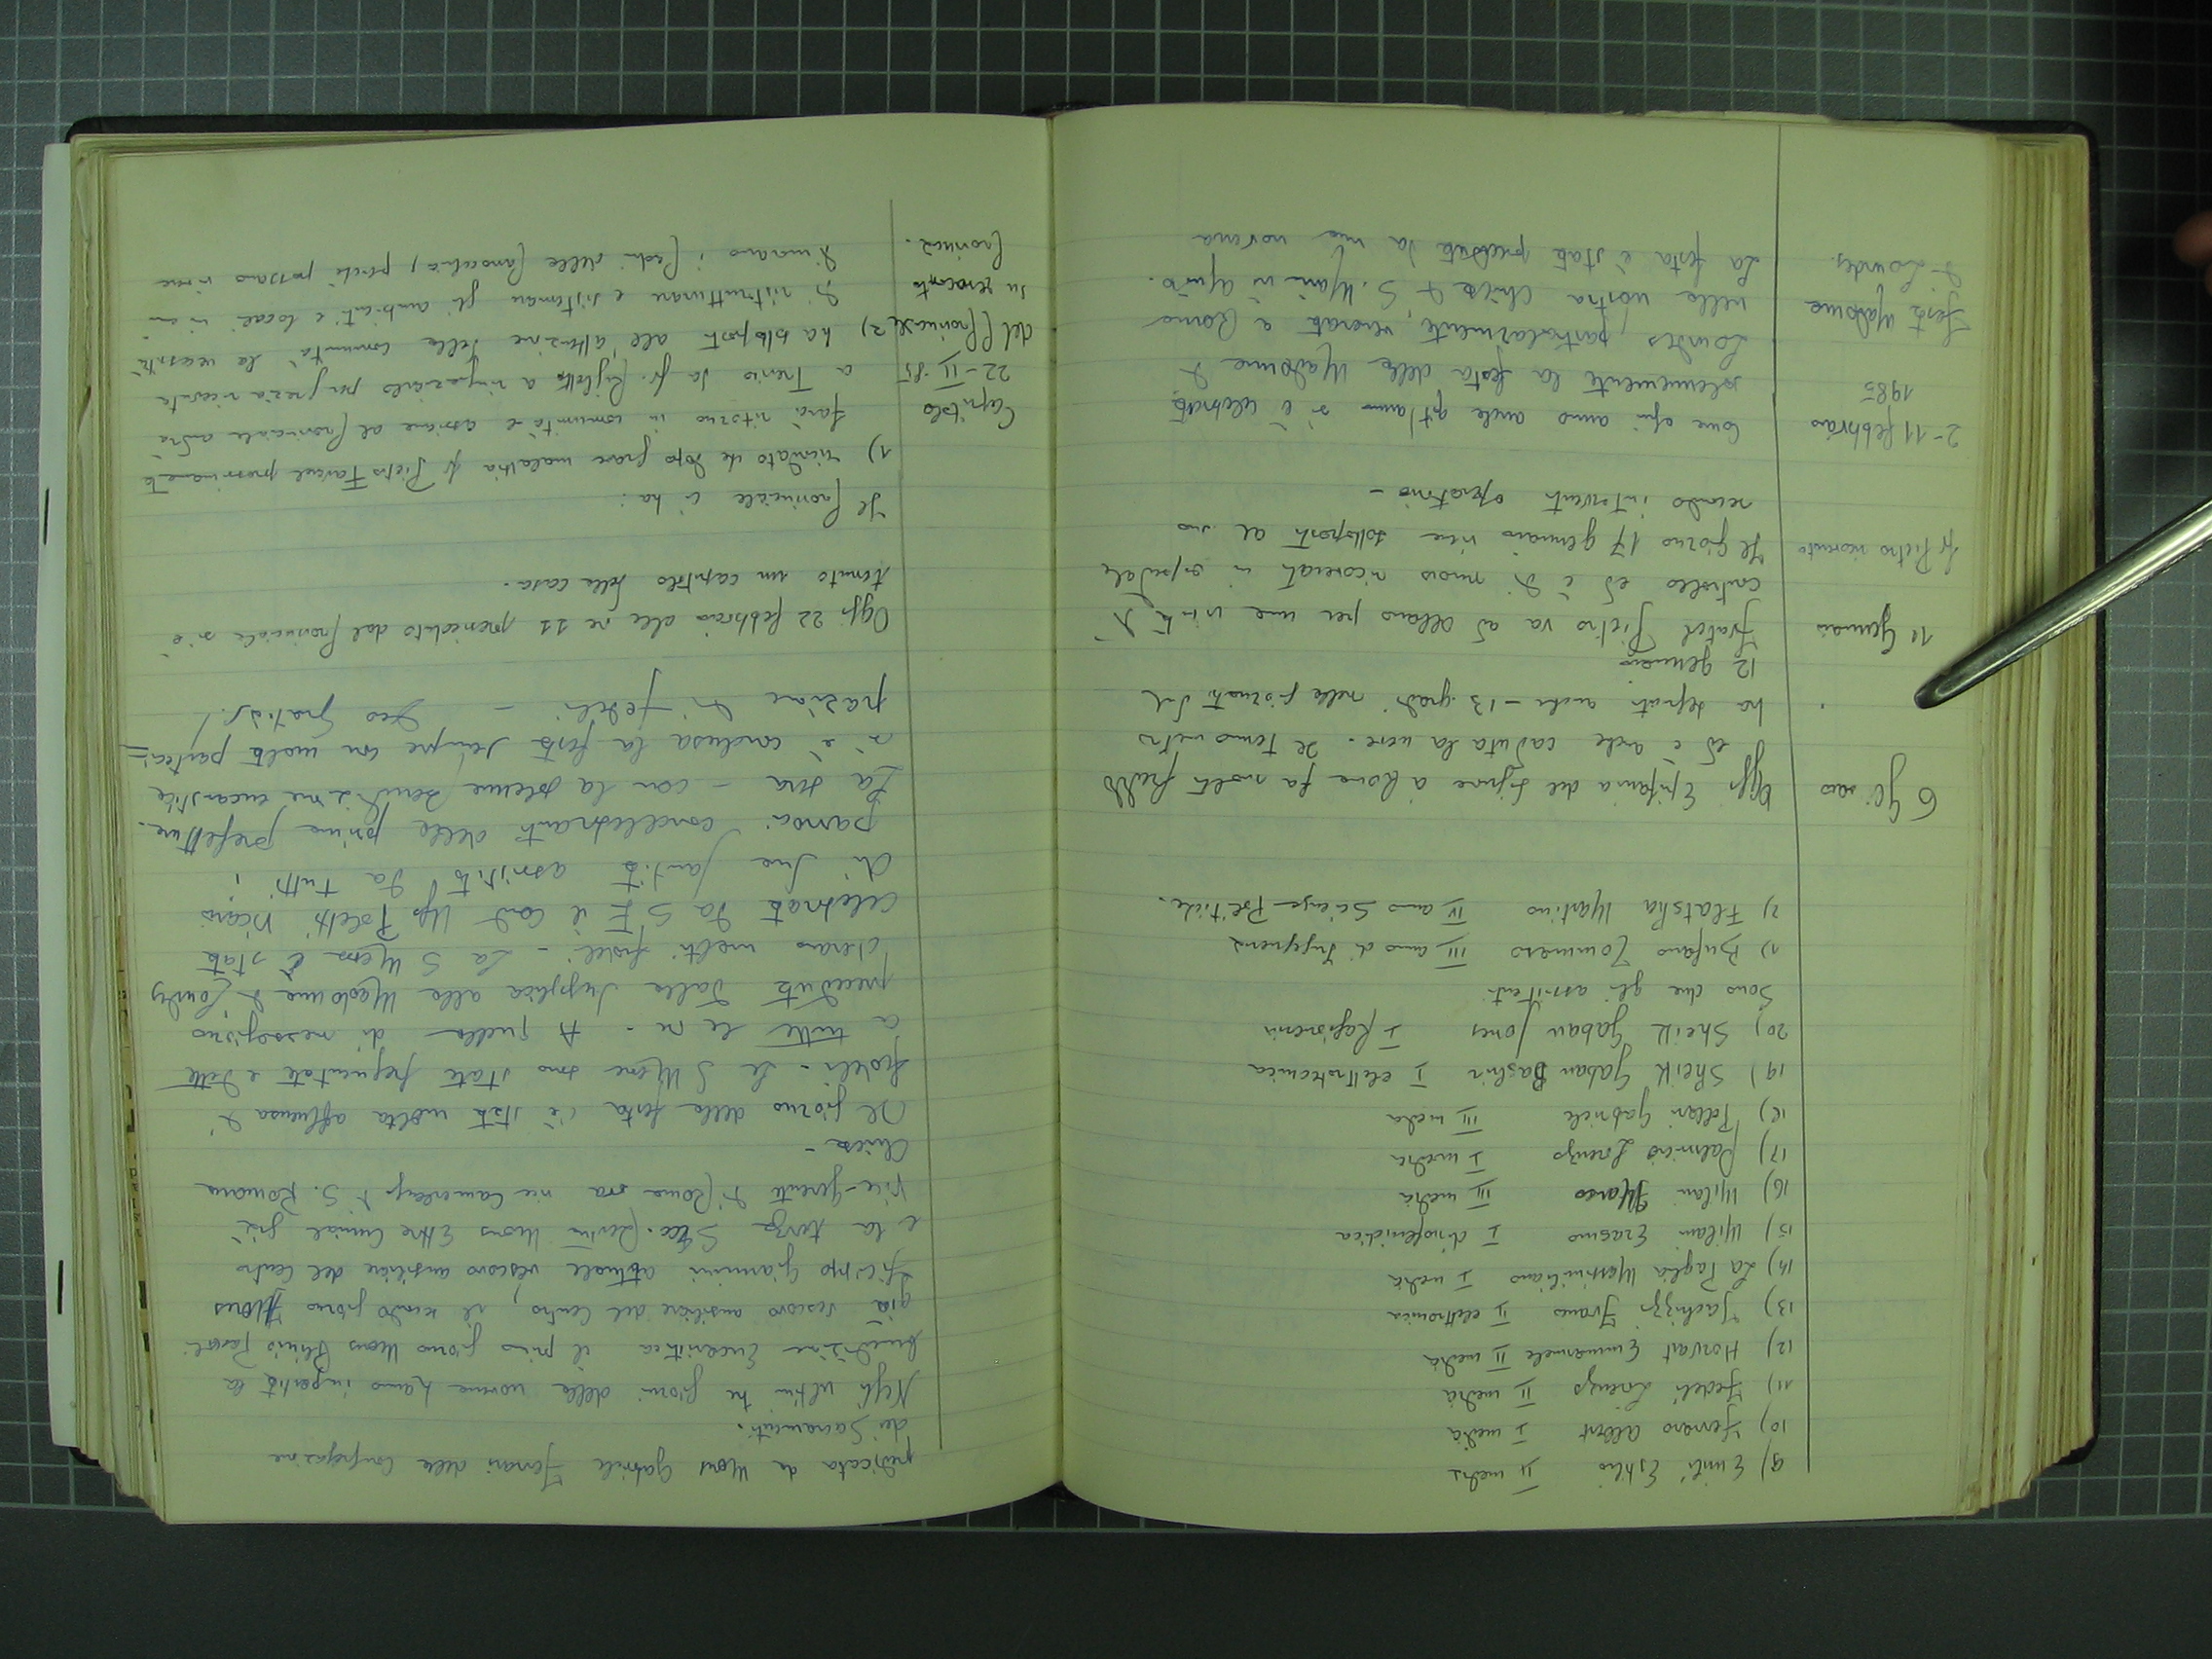 9) Emili Ezhio II media
10) Ferraro Albert I media
11) Fedeli Lorenzo II media
12) Horvart Emmanuele II media
13) Jachizzi Franco II elettronica
14) La Paglia Massimiliano I media
15) Milani Erasmo I
16) Milani Marco III media
17) Palmieri Lorenzo I media
18) Pollari Gabriele III media
19) Sheik Gaban Bashir I elettrotecnica
20) Sheik Gaban Jones I Ragioneria
Sono due gli assistenti
1) Bufano Tommaso III anno di Ingegneria
2) Flatska Martino IV anno Scienze Politiche.
6 Oggi Epifania del Signore a Roma fa molto freddo
ed è anche caduta la neve. Il termometro
ha segnato anche -13 gradi nella giornata del
12 gennaio
11 Gennaio Fratel Pietro va ad Albano per una visita di
controllo ed è di nuovo ricoverato in ospedale
fr Pietro ricoverato Il giorno 17 gennaio viene sottoposto al suo
secondo intervento operatorio -
2-11 febbraio Come ogni anno anche qst'anno si è celebrata
1985 solennemente la festa della Madonna di
Lourdes, particolarmente venerata a Roma
Festa Madonna nella nostra chiesa di S. Maria in Aquiro.
di Lourdes. La festa è stata preceduta da una novena
predicata da Mons Gabriele Ferrari della Congregazione
dei Sacramenti.
Negli ultimi tre giorni della novena hanno impartito la
benedizione Eucaristica il primo giorno Mons Plinio Pascoli
già vescovo ausiliare del Centro, il secondo giorno Mons
Filippo Giannini attuale vescovo ausiliare del Centro
e la terza Sua Ecc. Rev.ma Mons Ettore Cunial già
Vice-gerente di Roma ora vice Camerlengo di S. Romana
Chiesa -
Il giorno della festa c'è stata molta affluenza di
fedeli - Le S Messe sono state frequentate e dette
a tutte le ore. A quella di mezzogiorno
preceduta dalla Supplica alla Madonna di Lourdes
c'erano molti fedeli - La S Messa è stata
celebrata da S E il Card Ugo Poletti Vicario
di Sua Santità assistito da tutti i
parroci concelebranti della prima prefettura.
La sera - con la solenne benedizione eucaristica
si è conclusa la festa sempre con molta parteci=
pazione di fedeli - Deo Gratias!
Oggi 22 febbraio alle ore 11 presieduto dal Provinciale si è
tenuto un capitolo della casa.
Il Provinciale ci ha:
Capitolo 1) ricordato che dopo grave malattia fr Pietro Favaret prossimamente
22-II-85 farà ritorno in comunità e assieme al Provinciale andrà
del Provinciale a Treviso da fr. Righetto a ringraziarlo per grazia ricevuta
2) ha sottoposto all'attenzione della comunità la necessità
di ristrutturare e sistemare gli ambienti e locali in cui
Provincia. dimorano i Padri della Parrocchia, perché possano vivere